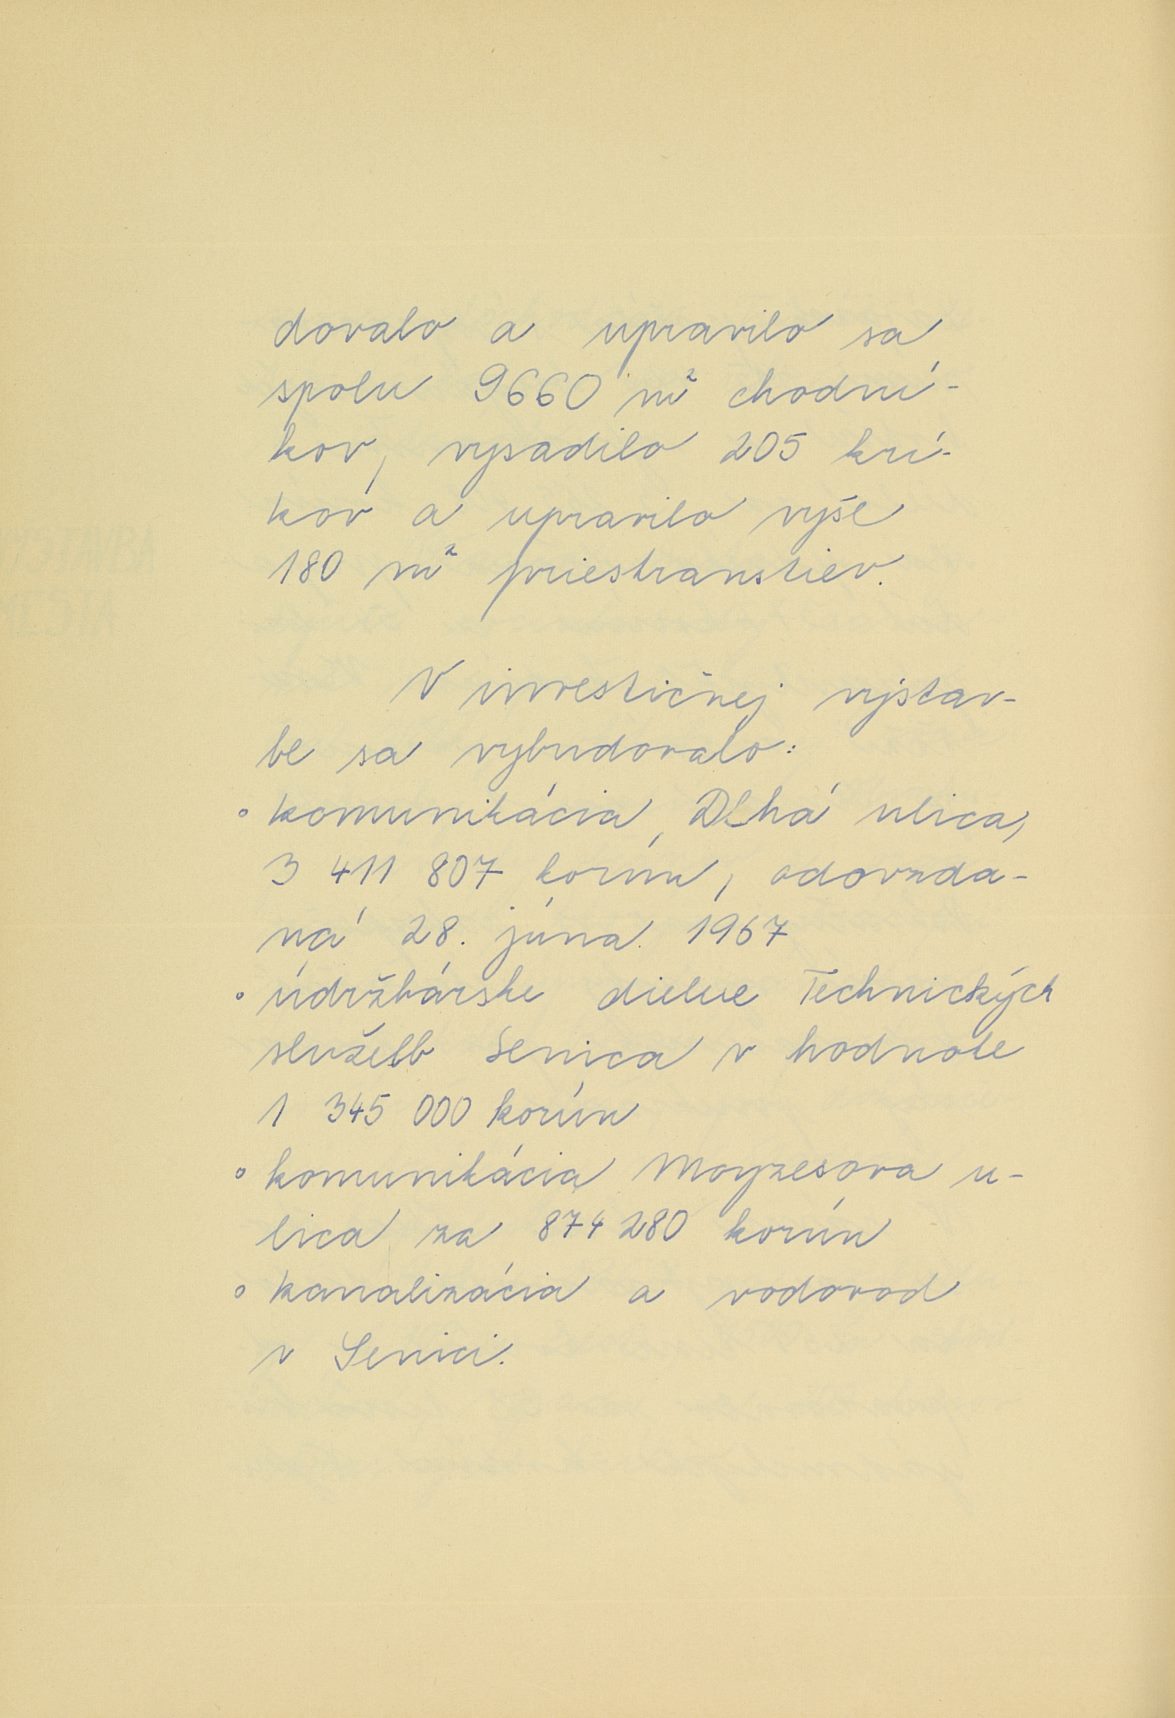 dovalo a upravilo sa
spolu 9660 m² chodní-
kov, vysadilo 205 krí-
kov a upravilo vyše
180 m² priestranstiev.
V investičnej výstav-
be sa vybudovalo:
° komunikácia, Dlhá ulica,
3 411 807 korún, odovzda-
ná 28. júna 1967
° údržbárske dielne Technických
služieb Senica v hodnote
1 345 000 korún
° komunikácia Moyzesova u-
lica za 874 280 korún
° kanalizácia a vodovod
v Senici.